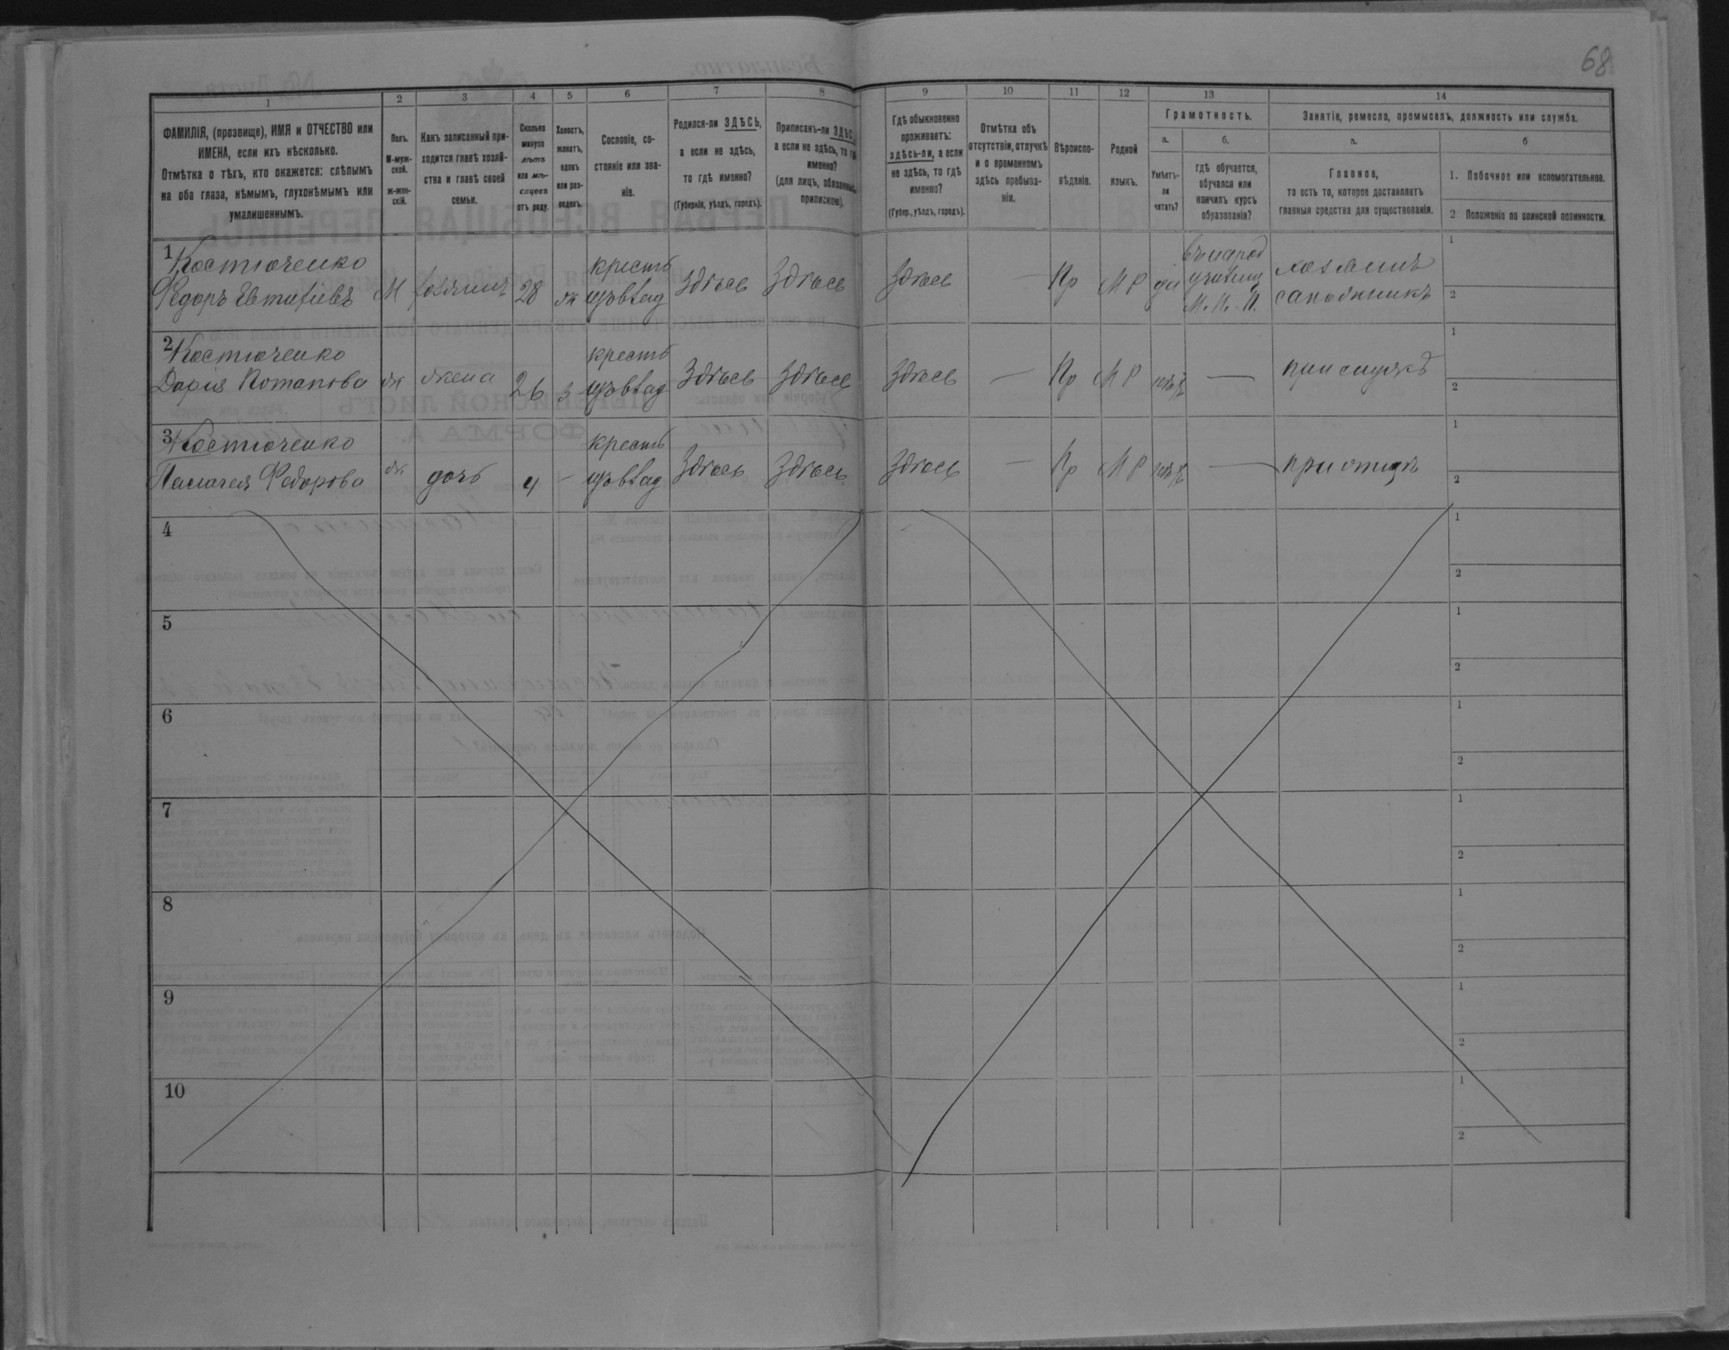 68
1
2
3
4
5
6
7
8
9
10
11
12
13
14
ФАМИЛІЯ, (прозвище), ИМЯ и ОТЧЕСТВО или
ИМЕНА, если ихъ нѣсколько.
Отмѣтка о тѣхъ, кто окажется: слѣпымъ
на оба глаза, нѣмымъ, глухонѣмымъ или
умалишеннымъ.
Полъ.
М-муж-
ской.
Ж-жен-
скій.
Какъ записанный при-
ходится главѣ хозяй-
ства и главѣ своей
семьи.
Сколько
минуло
лѣтъ
или мѣ-
сяцевъ
отъ роду.
Холостъ,
женатъ,
вдовъ
или раз-
веденъ.
Сословіе, со-
стояніе или зва-
ніе.
Родился-ли ЗДѢСЬ,
а если не здѣсь,
то гдѣ именно?
(Губернія, уѣздъ, городъ).
Приписанъ-ли ЗДѢСЬ,
а если не здѣсь, то гдѣ
именно?
(для лицъ, обязанныхъ
припиской).
Гдѣ обыкновенно
проживаетъ:
здѣсь-ли, а если
не здѣсь, то гдѣ
именно?
(Губер., уѣздъ, городъ).
Отмѣтка объ
отсутствіи, отлучкѣ
и о временномъ
здѣсь пребыва-
ніи.
Вѣроиспо-
вѣданіе.
Родной
языкъ.
Грамотность.
а.
Умѣетъ-
ли
читать?
б.
гдѣ обучается,
обучался или
кончилъ курсъ
образованія?
Занятіе, ремесло, промыселъ, должность или служба.
а.
Главное,
то есть то, которое доставляетъ
главныя средства для существованія.
б
1. Побочное или вспомогательное.
2 Положеніе по воинской повинности.
1 Костюченко
Федоръ Евтифіевъ М хозяинъ 28 ж крестъ Здѣсь Здѣсь Здѣсь — Пр М Р да
въ народ
училищ
М. Н. П.
хозяинъ
сапожникъ
1
2
2 Костюченко
Дарія Потапова ж жена 26 з крестъ Здѣсь Здѣсь Здѣсь — Пр М Р нѣтъ — при мужѣ
1
2
3 Костюченко
Пелагея Федорова ж дочь 4 — крестъ Здѣсь Здѣсь Здѣсь — Пр М Р нѣтъ — при отцѣ
1
2
4
1
2
5
1
2
6
1
2
7
1
2
8
1
2
9
1
2
10
1
2